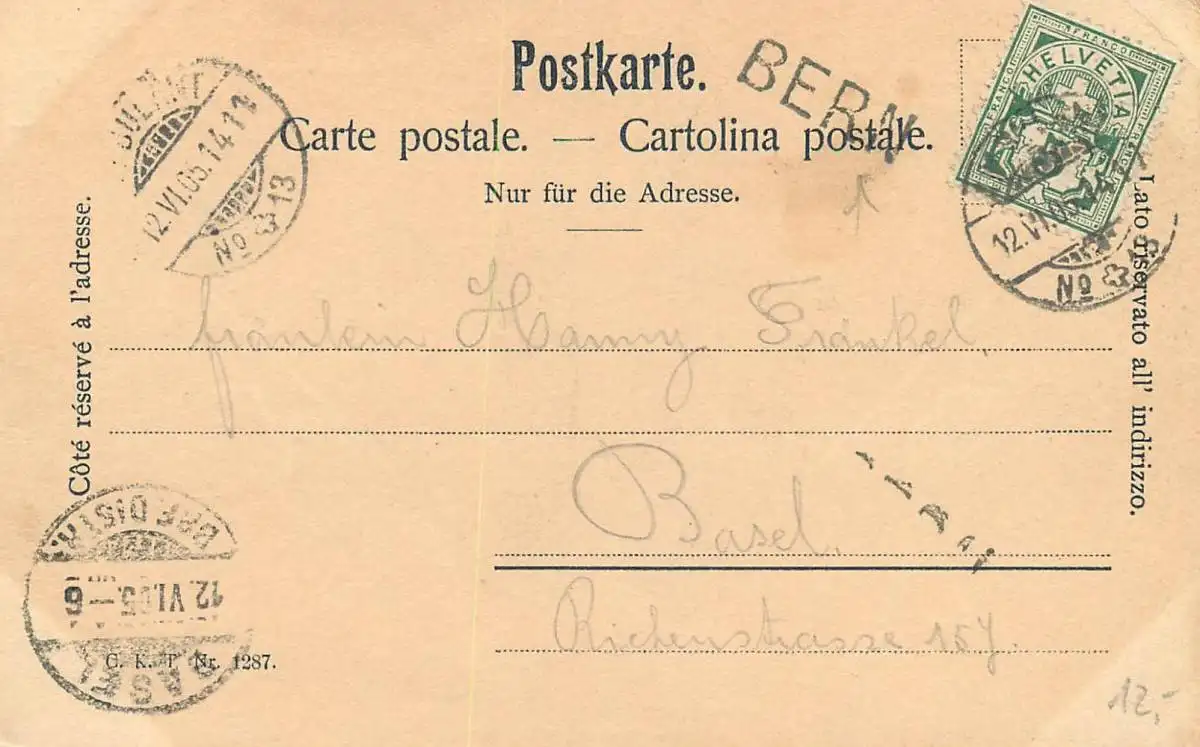 Postkarte.
BERN
Carte postale. — Cartolina postale.
Nur für die Adresse.
FRANCO
HELVETIA
FRANCO
12.VI.05.14
No 13
12.VI.
No 13
Côté réservé à l'adresse.
Lato riservato all' indirizzo.
fräulein Hanny Fränkel,
Basel.
Riehenstrasse 157.
BRF. DISTR.
12.VI.05.-6
BASEL
C. K. T Nr. 1287.
12,-